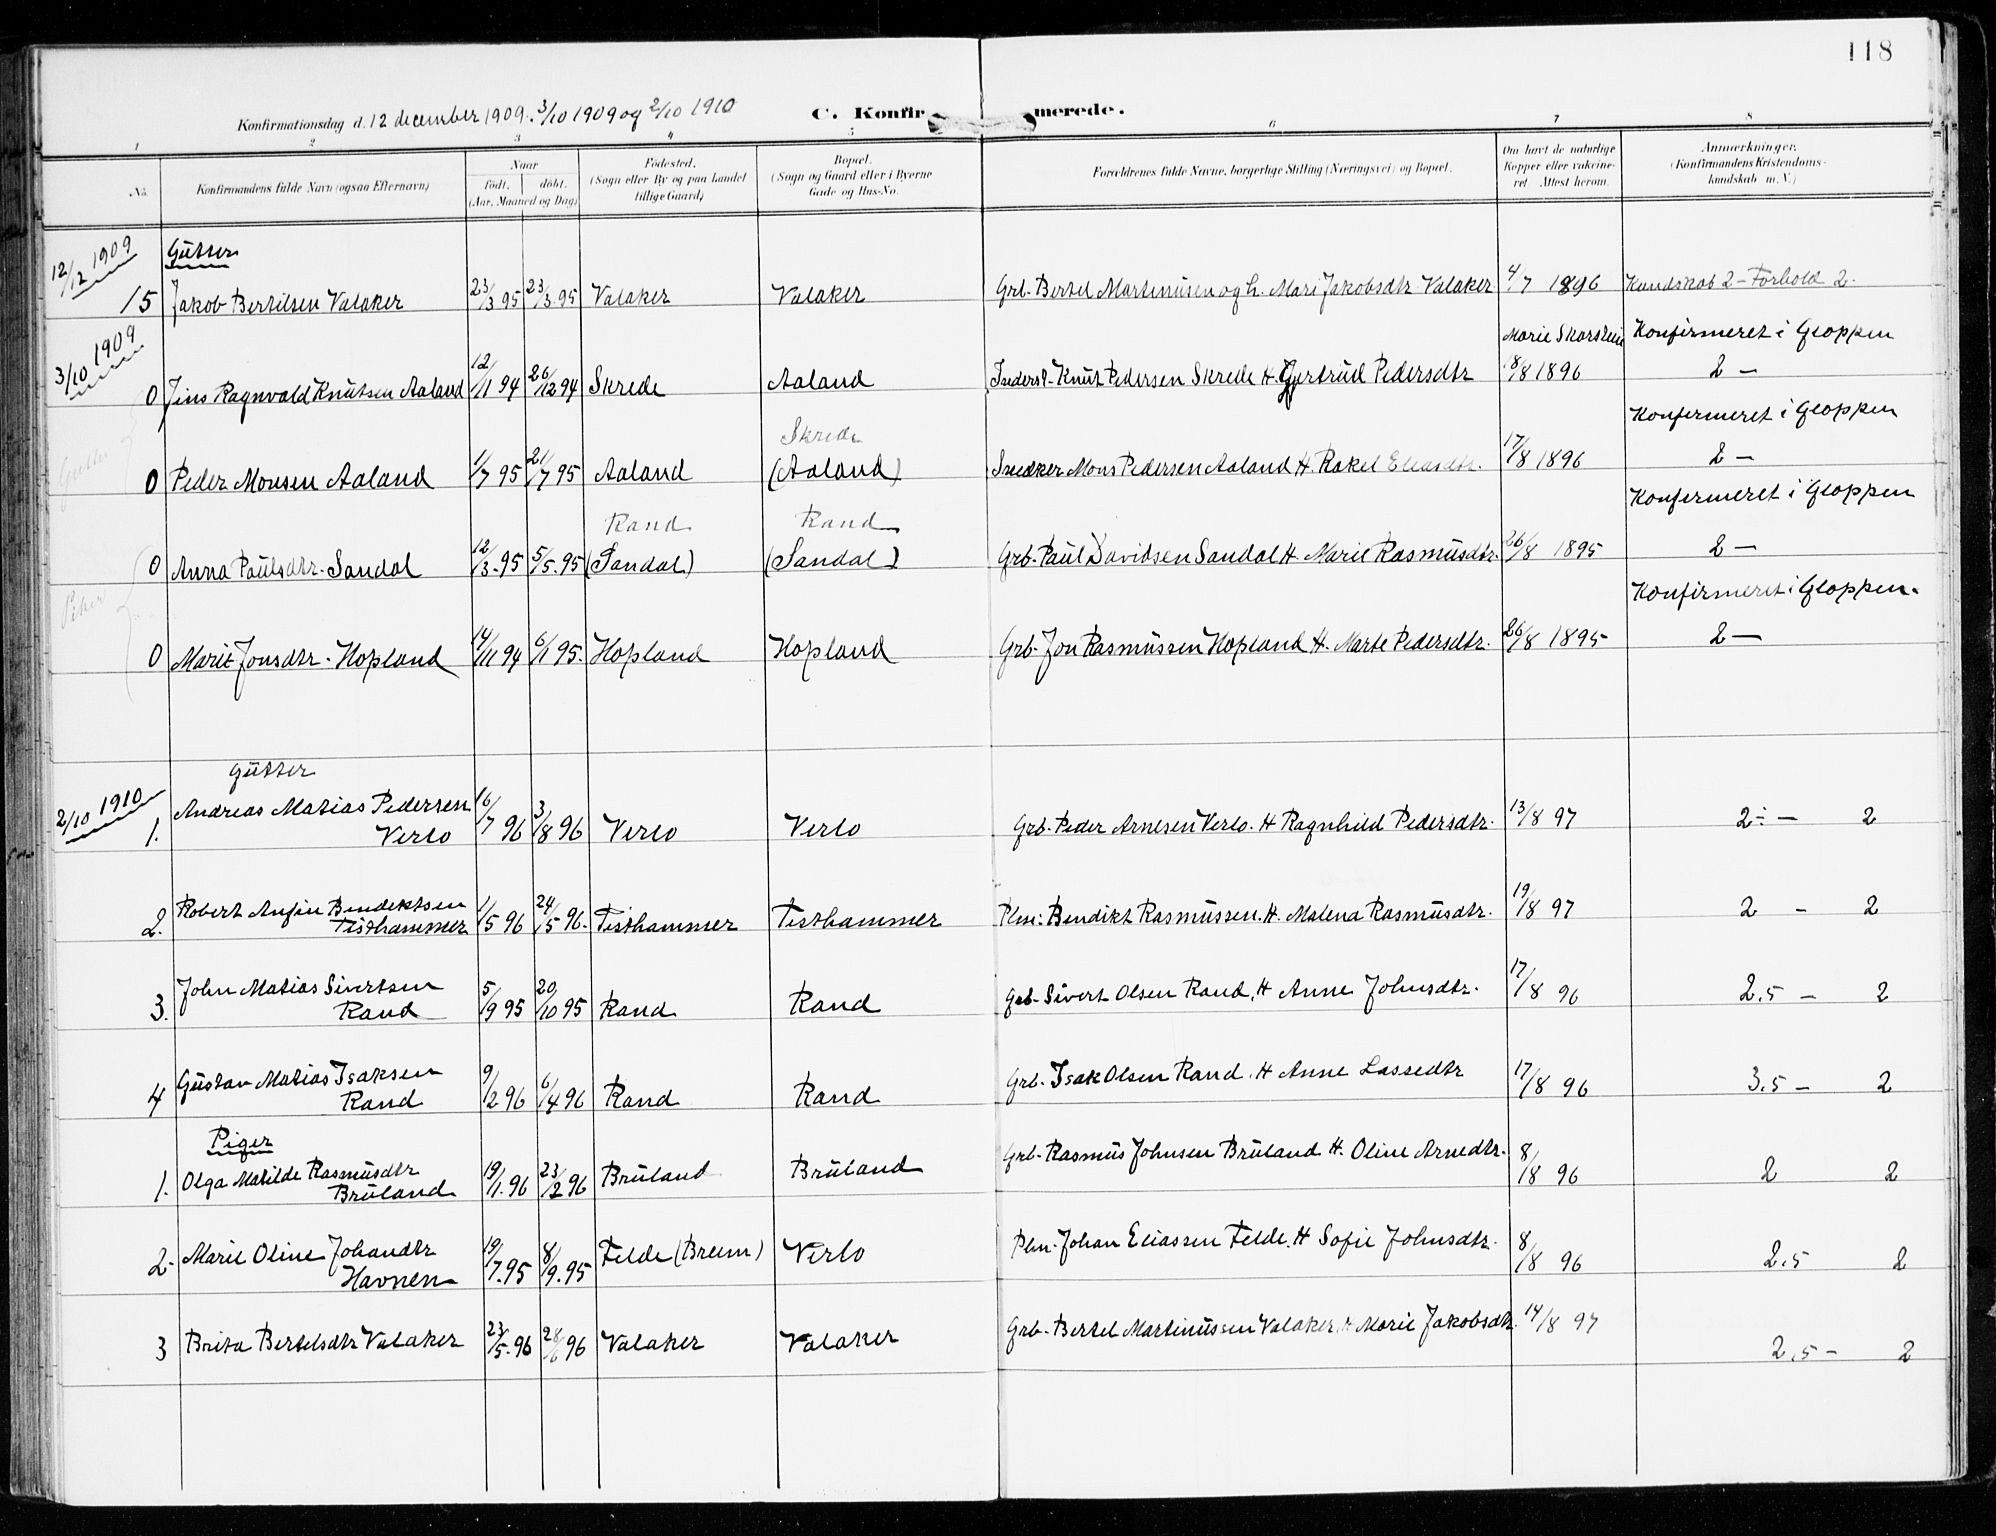 118
Konfirmationsdag d. 12 december 1909. 3/10 1909 og 2/10 1910 C. Konfirmerede.
1 2 3 4 5 6 7 8
No. Konfirmandens fulde Navn (ogsaa Efternavn) Naar født. døbt. (Aar, Maaned og Dag) Fødested. (Sogn eller By og paa Landet tillige Gaard) Bopæl. (Sogn og Gaard eller i Byerne Gade og Hus-No. Forældrenes fulde Navne, borgerlige Stilling (Næringsvei) og Bopæl. Om havt de naturlige Kopper eller vakcineret Attest herom. Anmærkninger. (Konfirmandens Kristendomskundskab m. V.)
12/12 1909 Gutter
15 Jakob Bertilsen Valaker 23/3 95 23/3 95 Valaker Valaker Grb. Bertel Martinusen og h. Mari Jakobsdtr Valaker 4/7 1896 Kundskab 2 – Forhold 2.
3/10 1909 Marie Skarstein Konfirmeret i Gloppen
0 Jens Ragnvald Knutsen Aaland 12/11 94 26/12 94 Skrede Aaland Inderst. Knut Pedersen Skrede H. Gjertrud Pedersdtr 18/8 1896 2 –
Gutter Skrede Konfirmeret i Gloppen
0 Peder Monsen Aaland 1/7 95 21/7 95 Aaland (Aaland) Snedker Mons Pedersen Aaland H. Rakel Eliasdtr. 17/8 1896 2 –
Rand Rand Konfirmeret i Gloppen
0 Anna Paulsdtr. Sandal 12/3. 95 5/5. 95 (Sandal) (Sandal) Grb. Paul Davidsen Sandal H. Marie Rasmusdtr. 26/8 1895 2 –
Piker Konfirmeret i Gloppen.
0 Marie Jonsdtr. Hopland 14/11 94 6/1 95. Hopland Hopland Grb. Jon Rasmussen Hopland H. Marte Pedersdtr. 26/8 1895 2 –
Gutter
2/10 1910 Andreas Matias Pedersen
1. Verlo 16/7 96 3/8 96 Verlo Verlo Grb. Peder Arnesen Verlo. H Ragnhild Pedersdtr. 13/8 97 2÷ – 2
Robert Anfin Bendiktsen
2. Tisthammer 1/5 96 24/5 96. Tisthammer Tisthammer Plm: Bendikt Rasmussen. H. Malena Rasmusdtr. 19/8 97 2 – 2
John Matias Sivertsen
3. Rand 5/9 95 20/10 95 Rand Rand Grb. Sivert Olsen Rand, H Anne Johnsdtr. 17/8 96 2.5 – 2
Gustav Matias Isaksen
4 Rand 9/2 96 6/4 96 Rand Rand Grb. Isak Olsen Rand. H Anne Lassedtr 17/8 96 3.5 – 2
Piger
Olga Matilde Rasmusdtr
1. Bruland 19/1. 96 23/2 96 Bruland Bruland Grb. Rasmus Johnsen Bruland H. Oline Arnedtr. 8/8 96 2 2
Marie Oline Johandtr
2. Havnen 19/7. 95 8/9. 95 Felde (Breim) Verlo Plm. Johan Eliassen Felde. H Sofie Johnsdtr. 8/8 96 2.5 2
3 Brita Bertelsdtr Valaker 23/5. 96 28/6 96 Valaker Valaker Grb. Bertel Martinussen Valaker. H Marie Jakobsdtr. 14/8 97 2.5 – 2